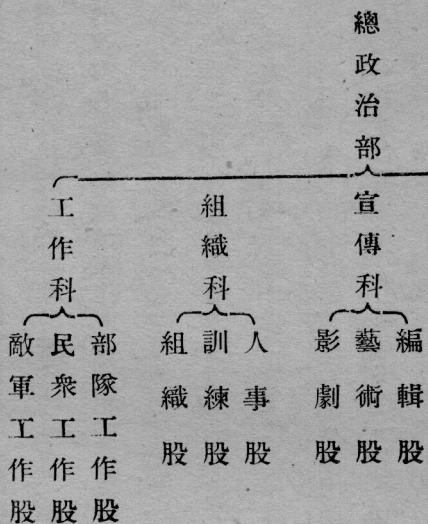 總政治部
宣傳科
編輯股
藝術股
影劇股
組織科
人事股
訓練股
組織股
工作科
部隊工作股
民衆工作股
敵軍工作股